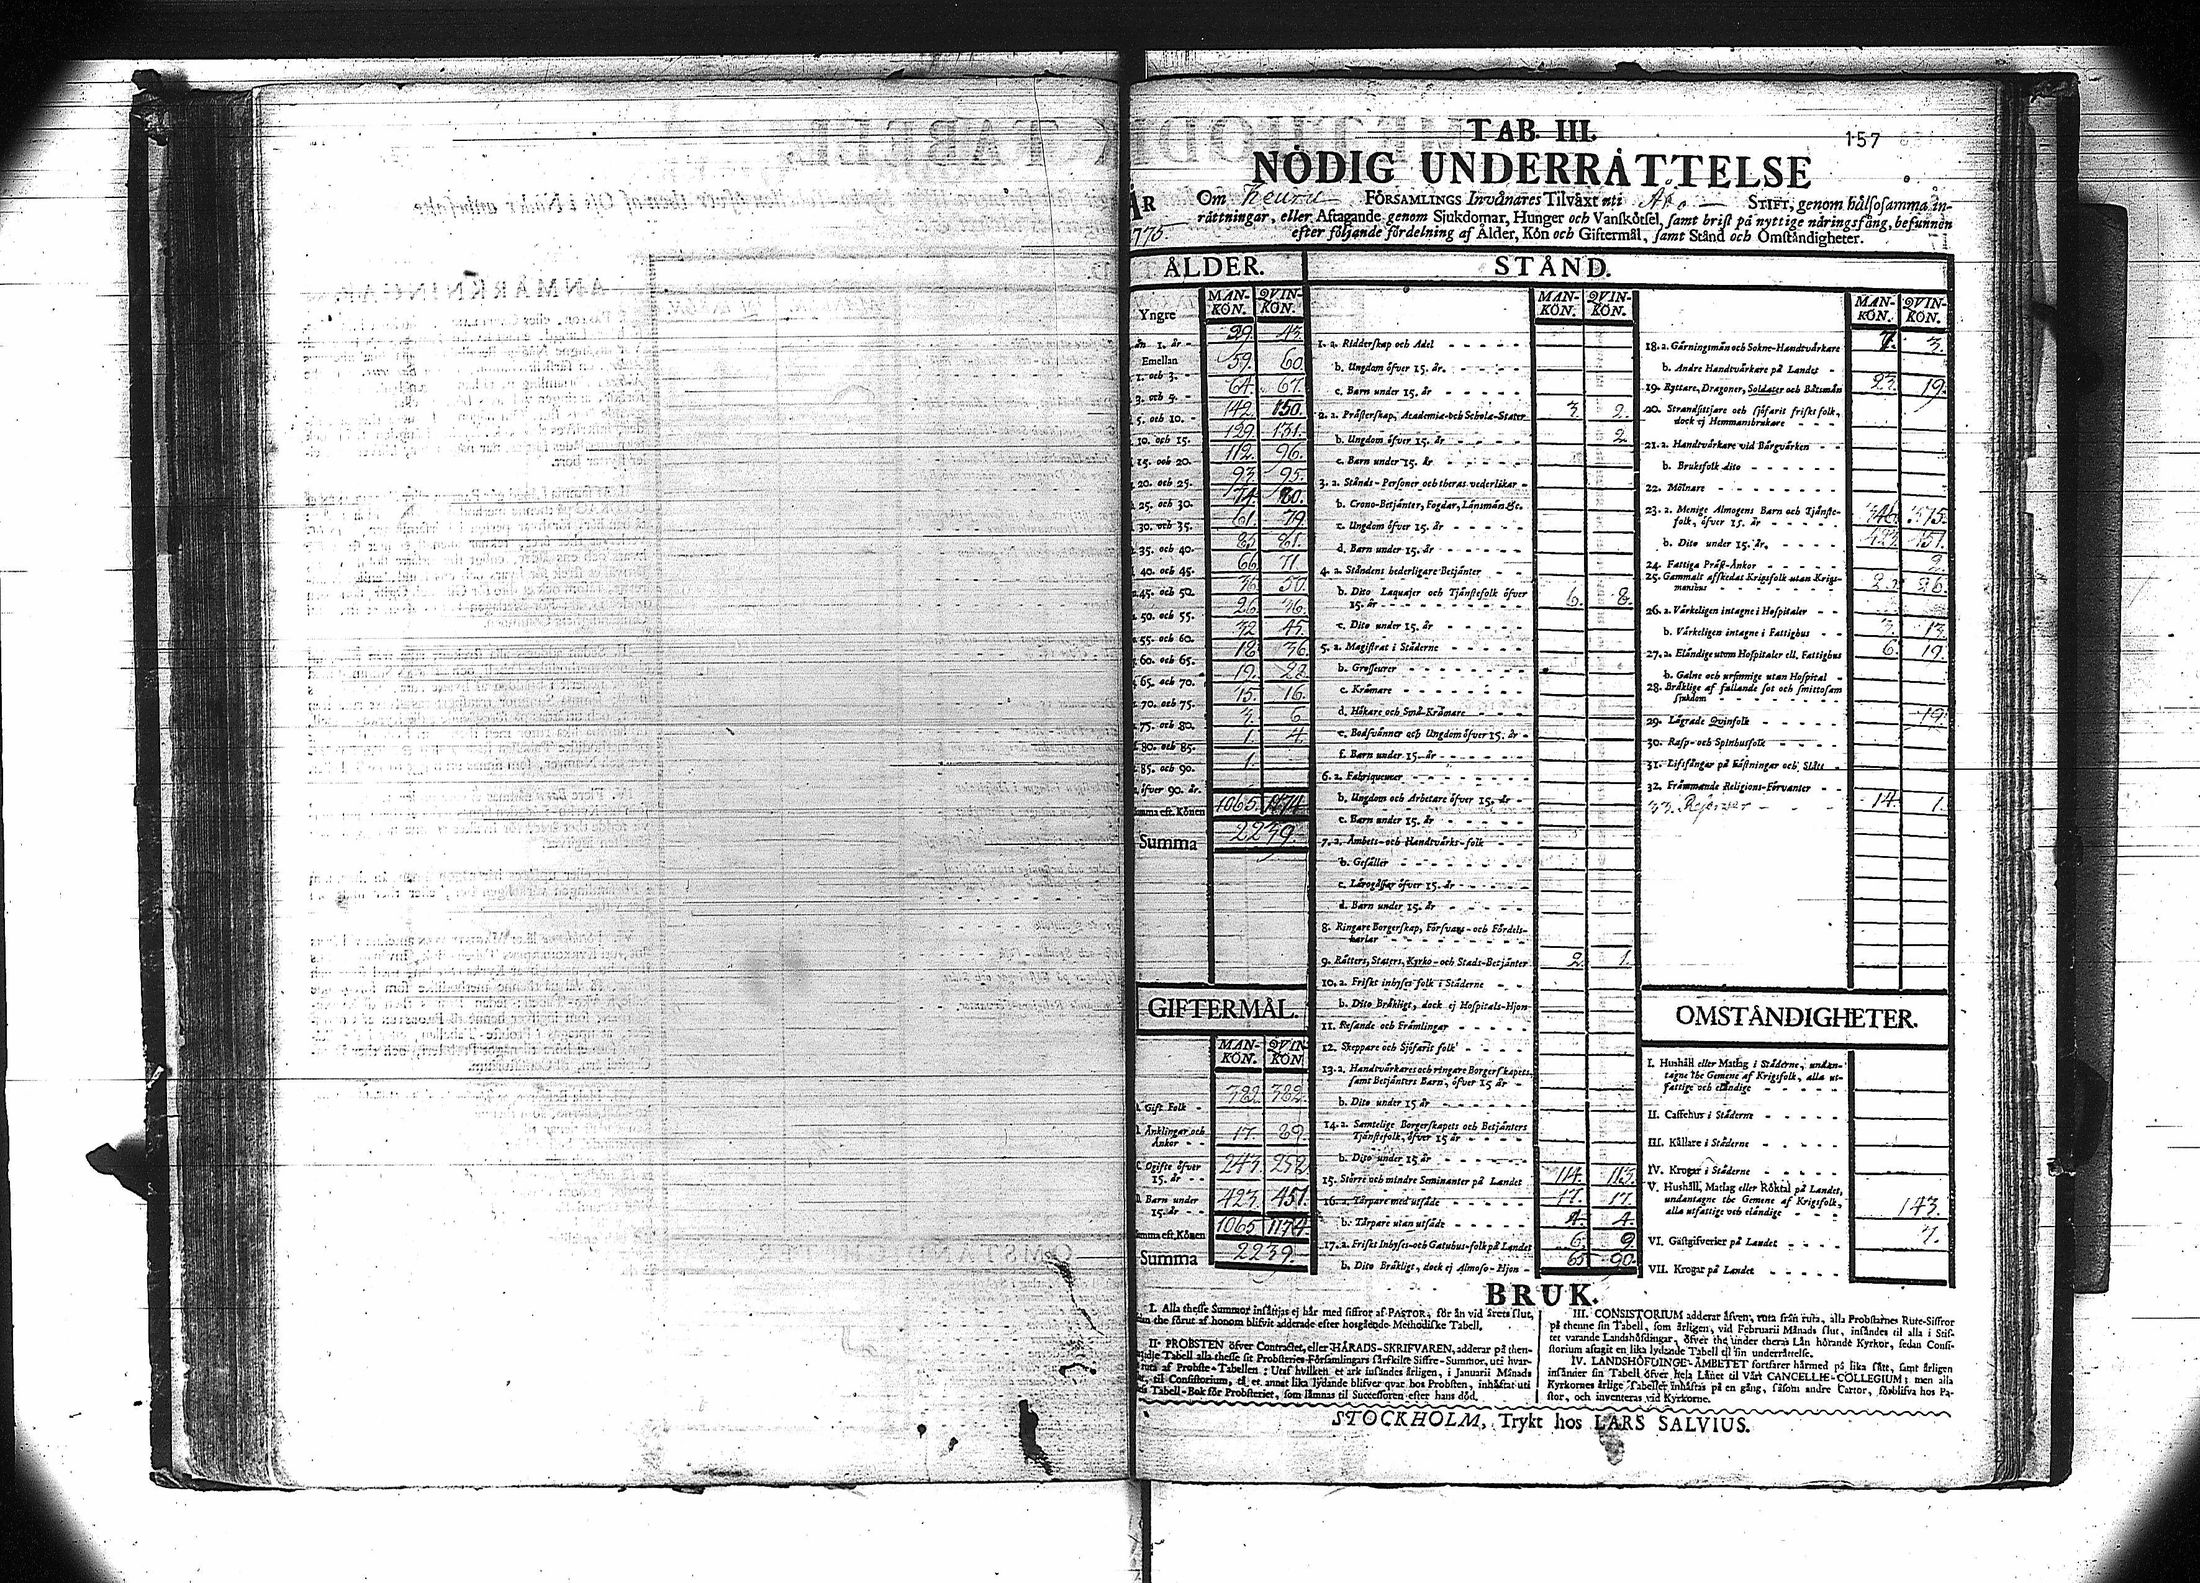 157
TAB. III.
NÖDIG UNDERRÅTTELSE
ÅR 1775.
Om Keuru FÖRSAMLINGS Invånares Tilväxt uti Åbo STIFT, genom hålsosamma in-
råttningar, eller Aftagande genom Sjukdomar, Hunger och Vanskötsel, samt brist på nyttige näringsfång, befunnen
efter följande fördelning af Ålder, Kön och Giftermål, samt Stånd och Omståndigheter.
ÅLDER.
MAN-KÖN. QVIN-KÖN.
Yngre
än 1. år - 43.
Emellan
1. och 3. - 59. 60.
3. och 5. - 64. 67.
5. och 10. - 142. 150.
10. och 15. 129. 131.
15. och 20. 112. 96.
20. och 25. 93. 95.
25. och 30. 74. 80.
30. och 35. 61. 79.
35. och 40. 85. 81.
40. och 45. 66. 71.
45. och 50. 36. 50.
50. och 55. 26. 36.
55. och 60. 32. 45.
60. och 65. 18. 36.
65. och 70. 19. 28.
70. och 75. 15. 16.
75. och 80. 3. 6.
80. och 85. 1. 4.
85. och 90. 1.
öfver 90. år.
Summa eft. Könen 1065. 1174.
Summa 2239.
GIFTERMÅL.
MAN-KÖN. QVIN-KÖN
Gift Folk - 382. 382.
Änklingar och
Änkor - - 17. 89.
Ogifte öfver
15. år - - 243. 252.
Barn under
15. år - - 423. 451.
Summa eft. Könen 1065 1174.
Summa 2239.
STÅND.
MAN-KÖN. QVIN-KÖN.
1. a. Ridderskap och Adel
b. Ungdom öfver 15. år.
c. Barn under 15. år
2. a. Präfterskap, Academiæ-och Scholæ-Stater 3. 2.
b. Ungdom öfver 15. år 2.
c. Barn under 15. år
3. a. Stånds-Personer och theras vederlikar
b. Crono-Betjänter, Fogdar, Länsmän &c.
c. Ungdom öfver 15. år
d. Barn under 15. år
4. a. Ståndens hederligare Betjänter
b. Dito Laquajer och Tjänstefolk öfver
15. år 6. 8.
c. Dito under 15. år
5. a. Magistrat i Städerne
b. Grosseurer
c. Krämare
d. Hökare och Små-Krämare
e. Bodsvänner och Ungdom öfver 15. år
f. Barn under 15. år
6. a. Fabriqueurer
b. Ungdom och Arbetare öfver 15. år
c. Barn under 15. år
7. a. Ämbets-och Handtvärks-folk
b. Gesäller
c. Lärogåssar öfver 15. år
d. Barn under 15. år
8. Ringare Borgerskap, Försvars-och Fördels-
karlar
9. Rätters, Staters, Kyrko-och Stads-Betjänter 2. 1.
10. a. Friskt inhyses folk i Städerne
b. Dito Bräkligt, dock ej Hospitals-Hjon
11. Resande och Främlingar
12. Skeppare och Sjöfarit folk
13. a. Handtvärkares och ringare Borgerskapets,
samt Betjänters Barn, öfver 15. år
b. Dito under 15 år
14. a. Samtelige Borgerskapets och Betjänters
Tjänstefolk, öfver 15 år
b. Dito under 15 år
15. Större och mindre Hemmanter på Landet 114. 113.
16. a. Tårpare med utsäde 17. 17.
b. Tårpare utan utsäde 4. 4.
17. a. Friskt Inhyses-och Gatuhus-folk på Landet 6. 9
b. Dito Bräkligt, dock ej Almoso-Hjon 65 90.
MAN-KÖN. QVIN-KÖN.
18. a. Gärningsmän och Sokne-Handtvärkare 7. 3.
b. Andre Handtvärkare på Landet
19. Ryttare, Dragoner, Soldater och Båtsmän 23. 19.
20. Strandsittjare och sjöfarit friskt folk,
dock ej Hemmansbrukare
21. a. Handtvärkare vid Bärgvärken
b. Bruksfolk dito
22. Mölnare
23. a. Menige Almogens Barn och Tjänste-
folk, öfver 15. år 375.
b. Dito under 15. år. 423. 451.
24. Fattiga Präst-Änkor 2.
25. Gammalt affskedat Krigsfolk utan Krigs-
manshus 26.
26. a. Värkeligen intagne i Hospitaler
b. Värkeligen intagne i Fattighus 3. 13.
27. a. Eländige utom Hospitaler ell. Fattighus 6. 19.
b. Galne och ursinnige utan Hospital
28. Bräklige af fallande sot och smittosam
sjukdom
29. Lägrade Qvinfolk 19.
30. Rasp-och Spinhusfolk
31. Lifsfångar på Fästningar och Slått
32. Främmande Religions-Förvanter
14. 1.
OMSTÅNDIGHETER.
I. Hushåll eller Matlag i Städerne, undan-
tagne the Gemene af Krigsfolk, alla ut-
fattige och eländige
II. Caffehus i Städerne
III. Källare i Städerne
IV. Krogar i Städerne
V. Hushåll, Matlag eller Röktal på Landet,
undantagne the Gemene af Krigsfolk,
alla utfattige och eländige 143.
VI. Gästgifverier på Landet
VII. Krogar på Landet
BRUK.
I. Alla thesse Summor insättjas ej här med siffror af PASTOR, för än vid årets slut,
tån the förut af honom blifvit adderade efter hosgående Methodiske Tabell.
II. PROBSTEN öfver Contractet, eller HÄRADS-SKRIFVAREN, adderar på then-
andje Tabell alla thesse sit Probsteries Församlingars särskilte Siffre-Summor, uti hvar-
ruta af Probste-Tabellen; Utaf hvilken et ark insändes årligen, i Januarii Månads
til Consistorium, tå et annat lika lydande blifver qvar hos Probsten, inhäftat uti
Tabell-Bok för Probsteriet, som lämnas til Successoren efter hans död.
III. CONSISTORIUM adderar åfven, ruta från ruta, alla Probstarnes Rute-Siffror
på thenne sin Tabell, som årligen, vid Februarii Månads slut, insändes til alla i Stif-
tet varande Landshöfdingar, öfver the under thera Län hörande Kyrkor, sedan Consi-
storium aftagit en lika lydande Tabell til sin underrättelse.
IV. LANDSHÖFDINGE-ÄMBETET fortfarer härmed på lika sått, samt årligen
insänder sin Tabell öfver hela Länet til Vårt CANCELLIE-COLLEGIUM; men alla
Kyrkornes årlige Tabeller inhäftas på en gång, såsom andre Cartor, förblifva hos Pa-
stor, och inventeras vid Kyrkorne.
STOCKHOLM, Trykt hos LARS SALVIUS.